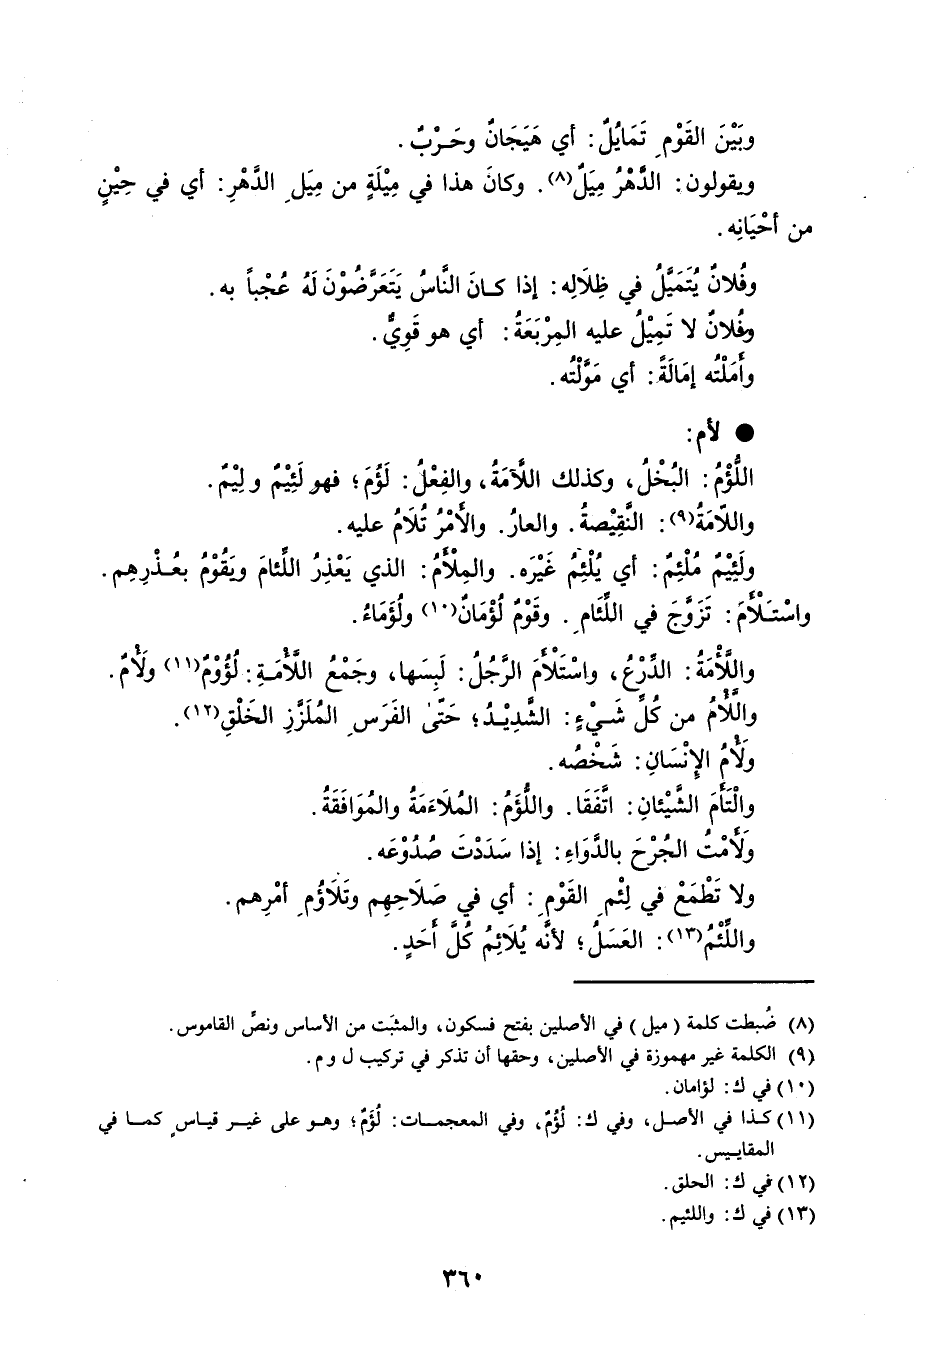 وبَيْنَ القَوْمِ تَمَايُلٌ: أي هَيَجَانٌ وحَرْبٌ.
ويقولون: الدَّهْرُ مِيَلٌ(٨). وكانَ هذا في مِيْلَةٍ من مِيَلِ الدَّهْرِ: أي في حِيْنٍ
من أحْيَانِه.
وفُلانٌ يُتَمَيَّلُ في ظِلَالِه: إذا كـانَ النَّاسُ يَتَعَرَّضُوْنَ لَهُ عُجْباً به.
وفُلانٌ لا تَمِيْلُ عليه المِرْبَعَةُ: أي هو قَوِيٌّ.
وأَمَلْتُه إمَالَةً: أي مَوَّلْتُه.
● لأم:
اللُّؤْمُ: البُخْلُ، وكذلك اللَّآمَةُ، والفِعْلُ: لَؤُمَ؛ فهو لَئِيْمٌ و لِيْمٌ.
واللّامَةُ(٩): النَّقِيْصةُ. والعارُ. والأَمْرُ تُلَامُ عليه.
ولَئِيْمٌ مُلْئِمٌ: أي يُلْئِمُ غَيْرَه. والمِلْأَمُ: الذي يَعْذِرُ اللِّئامَ ويَقُوْمُ بعُـذْرِهِم.
واسْتَـلْأَمَ: تَزَوَّجَ في اللِّئَامِ. وقَوْمٌ لُؤْمَانٌ(١٠) ولُؤَمَاءُ.
واللَّأْمَةُ: الدِّرْعُ، واسْتَلْأَمَ الرَّجُلُ: لَبِسَها، وجَمْعُ اللَّأْمَـةِ: لُؤُوْمٌ(١١) ولَأْمٌ.
واللَّأْمُ من كُلِّ شَـيْءٍ: الشَّدِيْـدُ؛ حَتّىٰ الفَرَسِ المُلَزَّزِ الخَلْقِ(١٢).
ولَأْمُ الإِنْسَانِ: شَخْصُه.
والْتَأَمَ الشَّيْئانِ: اتَّفَقَا. واللُّؤَمُ: المُلَاءَمَةُ والمُوَافَقَةُ.
ولَأَمْتُ الجُرْحَ بالدَّوَاءِ: إذا سَدَدْتَ صُدُوْعَه.
ولا تَطْمَعْ في لِئْمِ القَوْمِ: أي في صَلَاحِهِم وتَلَاؤُمِ أمْرِهم.
واللِّئْمُ(١٣): العَسَلُ؛ لأنَّه يُلَائِمُ كُلَّ أَحَدٍ.
(٨) ضُبطت كلمة (ميل) في الأصلين بفتح فسكون، والمثبَت من الأساس ونصِّ القاموس.
(٩) الكلمة غير مهموزة في الأصلين، وحقها أن تذكر في تركيب ل و م.
(١٠) في ك: لؤامان.
(١١) كـذا في الأصـل، وفي ك: لُؤُمٌ، وفي المعجمـات: لُؤَمٌ؛ وهـو على غيـر قيـاسٍ كمـا في
المقاييس.
(١٢) في ك: الحلق.
(١٣) في ك: واللئيم.
٣٦٠